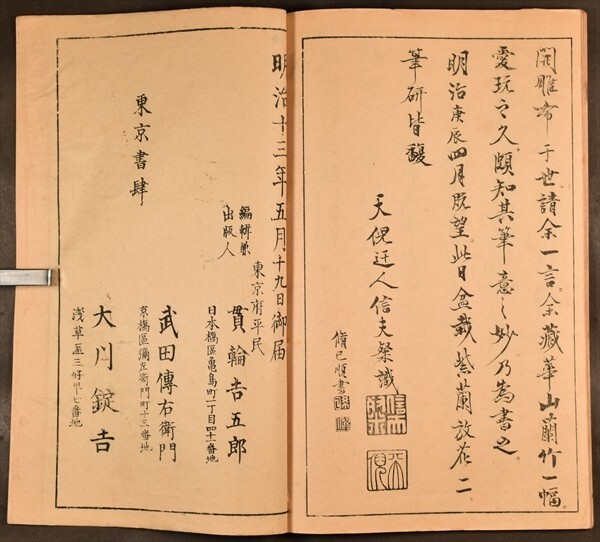 開雕布于世請余一言余藏華山蘭竹一幅
愛玩之久頗知其筆意之妙乃為書之
明治庚辰四月既望此日盆栽紫蘭放花二
筆研皆馥
天倪迂人信夫粲識
脩己順書
明治十三年五月十九日御届
東京府平民
編輯兼
出版人
貫輪吉五郎
日本橋區亀島町一丁目四十一番地
東京書肆
武田傳右衛門
京橋區彌左衛門町十三番地
大川錠吉
淺草區三好町七番地